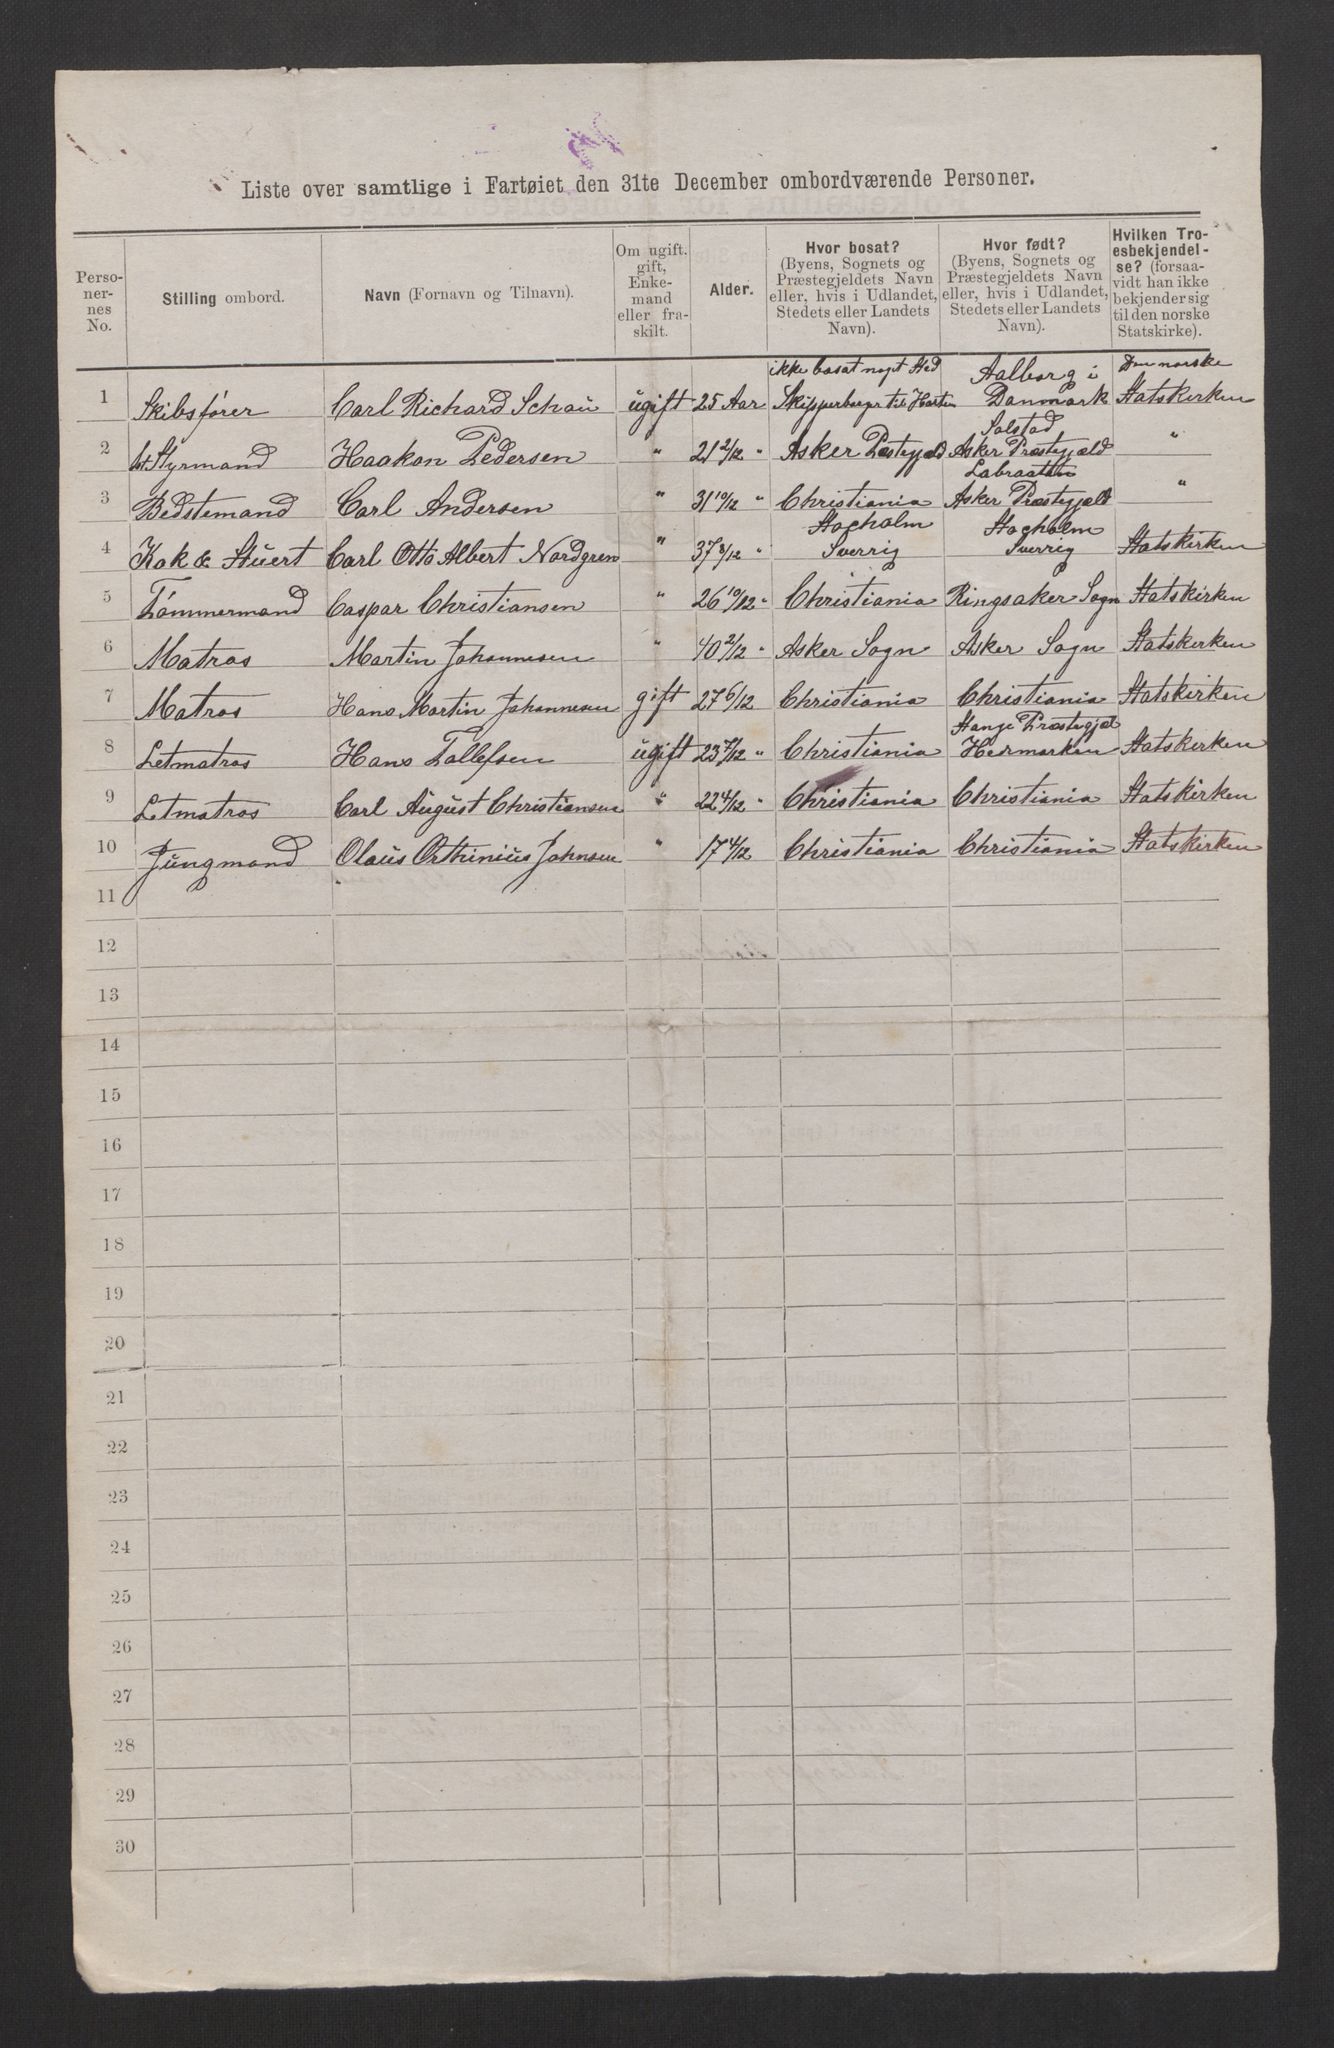 Liste over samtlige i Fartøiet den 31te December ombordværende Personer.
Perso-
ner-
nes
No.
Stilling ombord.
Navn (Fornavn og Tilnavn).
Om ugift.
gift,
Enke-
mand
eller fra-
skilt.
Alder.
Hvor bosat?
(Byens, Sognets og
Præstegjeldets Navn
eller, hvis i Udlandet,
Stedets eller Landets
Navn).
Hvor født?
(Byens, Sognets og
Præstegjeldets Navn
eller, hvis i Udlandet,
Stedets eller Landets
Navn).
Hvilken Tro-
esbekjendel-
se? (forsaa-
vidt han ikke
bekjender sig
til den norske
Statskirke).
ikke bosat nogt Sted Aalborg i Den norske
1 Skibsfører Carl Richard Schau ugift 25 Aar Skipperborger til Danmark Statskirken
Solstad
2 1st Styrmand Haakon Pedersen " 21 2/12 " Asker Præstegjæld Asker Præstegjæld "
Labraaten
3 Bedstemand Carl Andersen " 31 10/12 " Christiania Asker Præstegjæld "
Stocholm Stocholm
4 Kok & Stuert Carl Otto Albert Nordgren " 37 8/12 " Sverrig Sverrig Statskirken
5 Tømmermand Caspar Christiansen " 26 10/12 " Christiania Ringsaker Sogn Statskirken
6 Matros Martin Johannesen " 40 2/12 " Asker Sogn Asker Sogn Statskirken
7 Matros Hans Martin Johannesen gift 27 6/12 Christiania Christiania Statskirken
Stange Præstegjel
8 Letmatros Hans Tollefsen ugift 23 7/12 " Christiania Hedmarken Statskirken
9 Letmatros Carl August Christiansen " 22 4/12 " Christiania Christiania Statskirken
10 Jungmand Olaus Johnsen " 17 4/12 Christiania Christiania Statskirken
11
12
13
14
15
16
17
18
19
20
21
22
23
24
25
26
27
28
29
30